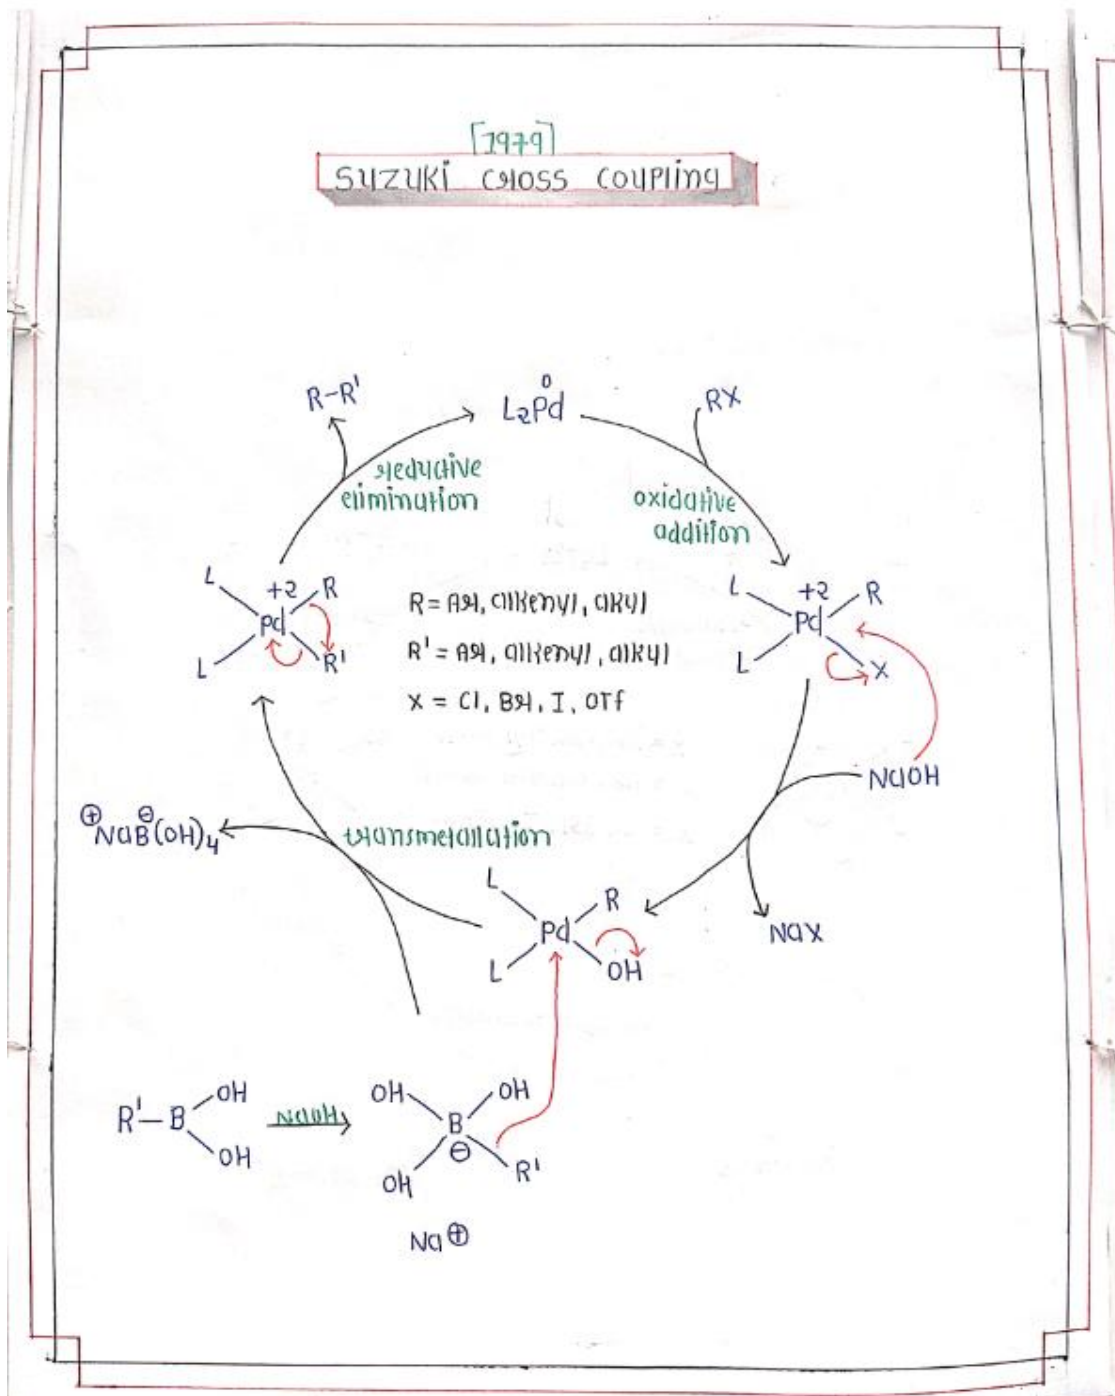 [1979]
SUZUKI CROSS COUPLING
R-R'
L₂Pd⁰
RX
reductive
elimination
oxidative
addition
L
+2
R
Pd
L
R'
L
+2
R
Pd
L
X
R = Ar, alkenyl, alkyl
R' = Ar, alkenyl, alkyl
X = Cl, Br, I, OTf
NaOH
⊕NaB⊖(OH)₄
transmetallation
L
R
Pd
L
OH
NaX
R'-B
OH
OH
NaOH
OH
OH
B
⊖
OH
R'
Na⊕